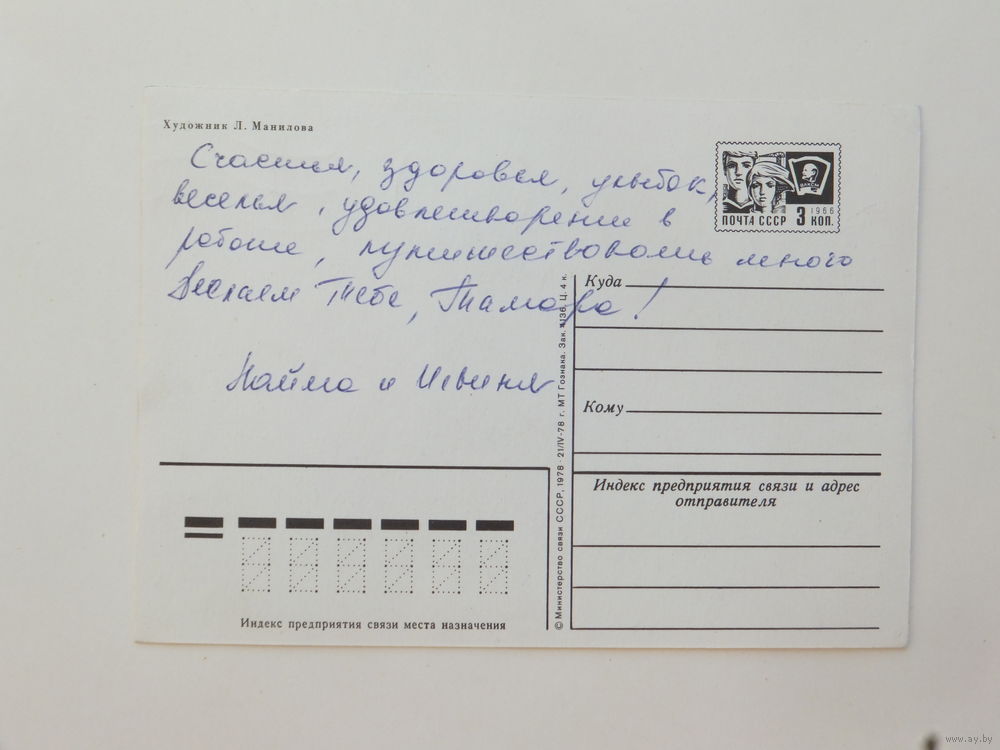 Художник Л. Манилова
Счастья, здоровья, улыбок,
веселья, удовлетворения в
работе, путешествовать много
Желаем Тебе, Тамара!
Найма и
ПОЧТА СССР 3 КОП.
1966
ВЛКСМ
Куда
Кому
Индекс предприятия связи и адрес
отправителя
Индекс предприятия связи места назначения
© Министерство связи СССР, 1978 · 21/IV-78 г. МТ Гознака. Зак. Ц. 4 к.
www.ay.by